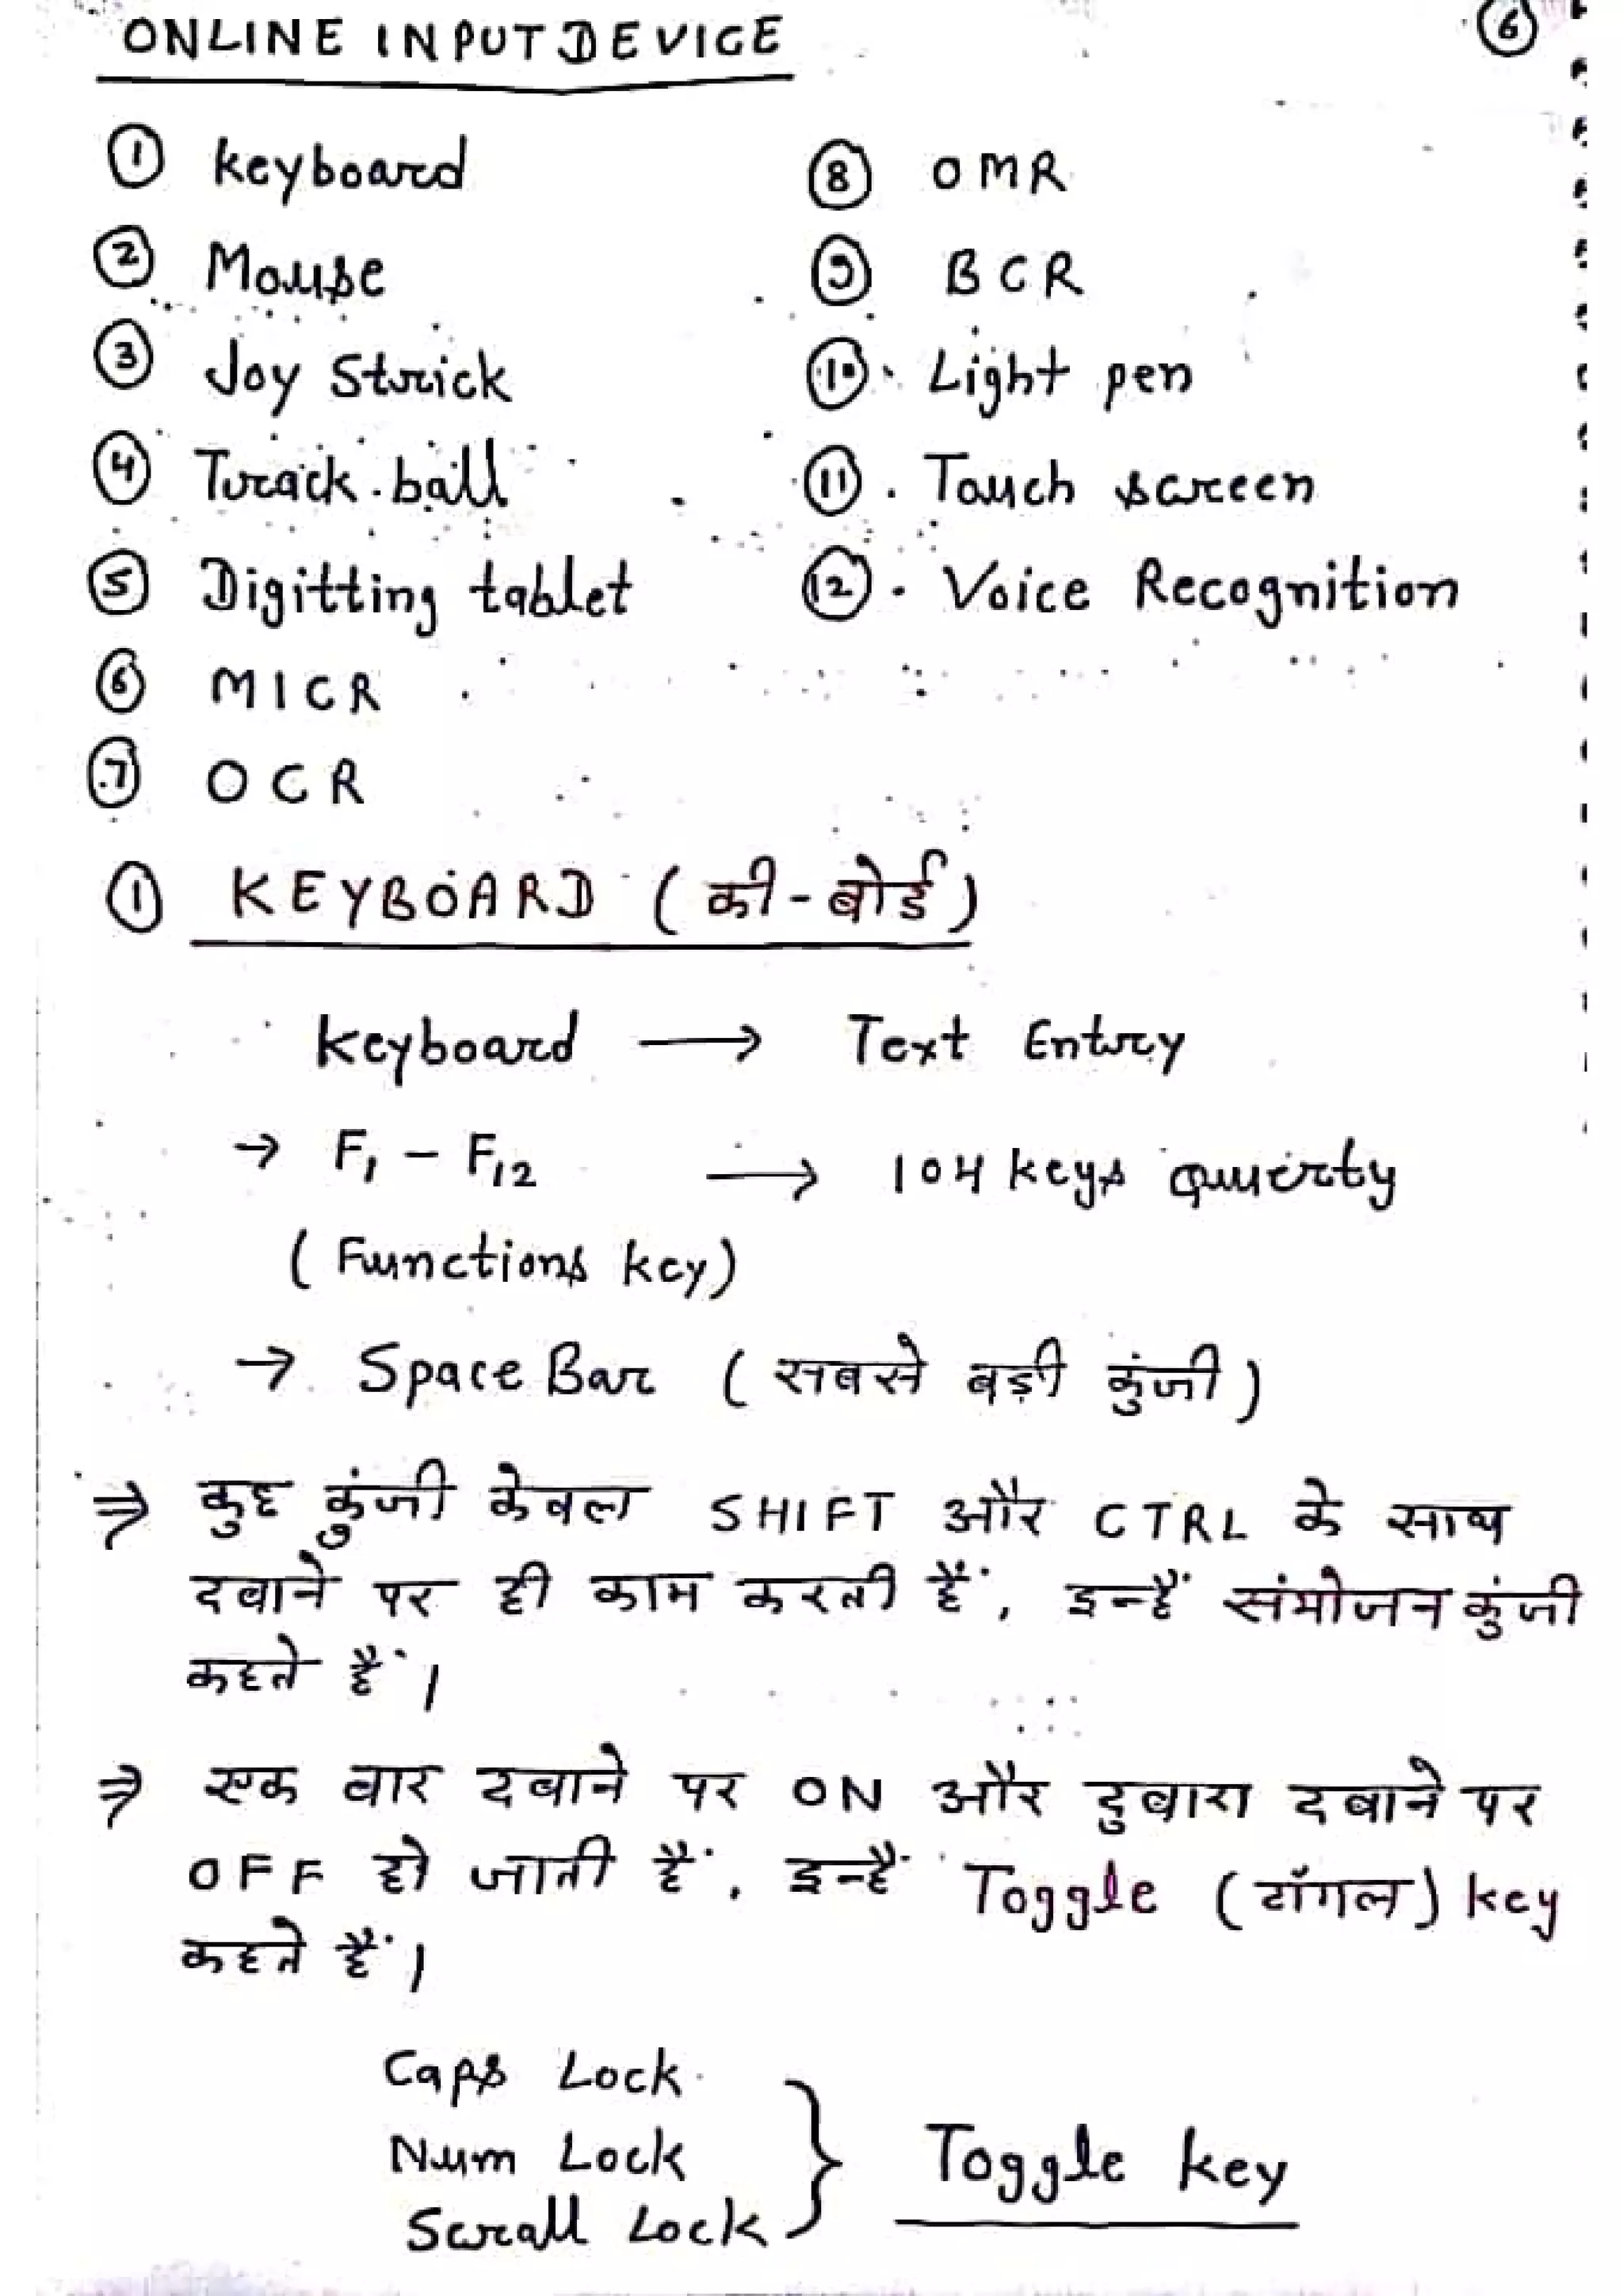 ONLINE INPUT DEVICE
6
① keyboard
② Mouse
③ Joy Strick
④ Track ball
⑤ Digitting tablet
⑥ MICR
⑦ OCR
⑧ OMR
⑨ BCR
⑩ Light pen
⑪ Touch screen
⑫ Voice Recognition
① KEYBOARD (की-बोर्ड)
keyboard → Text Entry
→ F1 - F12 → 104 keys quuerty
(Functions key)
→ Space Bar (सबसे बड़ी कुंजी)
⇒ कुछ कुंजी केवल SHIFT और CTRL के साथ
दबाने पर ही काम करती हैं, इन्हैं संयोजन कुंजी
कहते हैं।
⇒ एक बार दबाने पर ON और दुबारा दबाने पर
OFF हो जाती हैं, इन्हैं Toggle (टॉगल) key
कहते हैं।
Caps Lock
Num Lock
Scrall Lock
} Toggle key